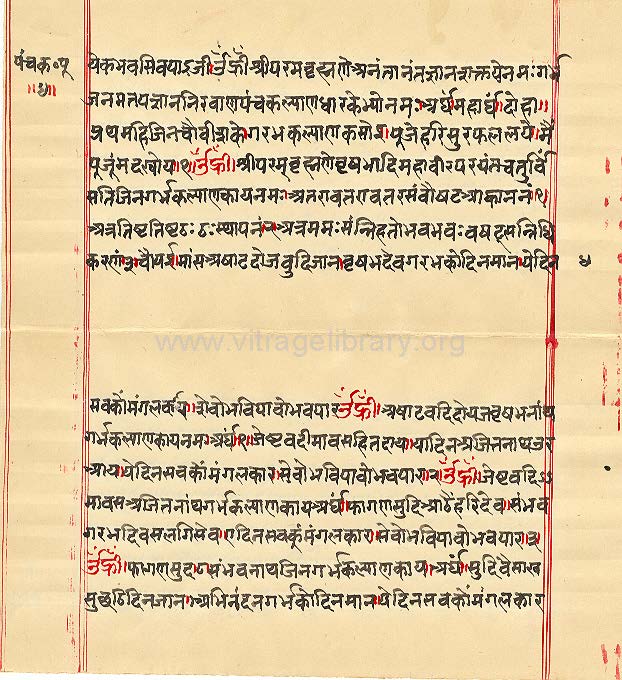 पंचक॰पू
॥४॥
येकभवसिवपाऽजी ॐह्रीँ श्रीपरमब्रह्मणेअनंतानंतज्ञानशक्तयेनमःगर्भ
जनमतपज्ञाननिरवाणपंचकल्याणधारकेभ्योनमः॥अर्घमहार्घ॥दोहा॥
प्रथमहिजिनचौवीशके॥गरभकल्याणक पूजेहरिसुरफललये॥मैं
पूजूंमद ॐह्रीँ॥श्रीपरमब्रह्मणेवृषभादिमहावीरपरयंतचतुर्विं
सतिजिनगर्भकल्याणकायनमः॥अतरावतरावतरसंवौषटआह्वाननं॥१॥
अत्रतिष्टतिष्टठःठःस्थापनं॥२॥अत्रममःसंन्निहतोभवभवःवषट्सन्निधि
करणं॥३॥चौपई॥मासअषाटदोजवुदिजान॥वृषभदेवगरभकोदिनमान॥येदिन
४
www.vitragelibrary.org
सवकोंमंगलकार॥सेवोभविपावोभवपार॥ॐह्रीँ॥अषाटवदिदोयजवृषभनाथ
गर्भकल्याणकायनमः॥अर्घं॥१॥जेष्टवदीमावसहितदाय॥यादिनअजितनाथउर
आय॥येदिनसवकोंमंगलकार॥सेवोभविपावोभवपार॥२॥ॐह्रीँ॥जेष्टवदिऽऽ
मावसअजितनांथगर्भकल्याणकाय॥अर्घं॥फागणसुदिआठैंहरिदेव॥संभव
गरभदिवसलगिसेव॥एदिनसवकूंमंगलकार॥सेवोभविपावोभवपार॥३॥
ॐह्रीँ॥फागणसुद८॥संभवनाथजिनगर्भकल्याणकाय॥अर्घं॥सुदिवैसाख
सुछठिदिनजान॥अभिनंदनगर्भकोदिनमान॥येदिनसवकोंमंगलकार